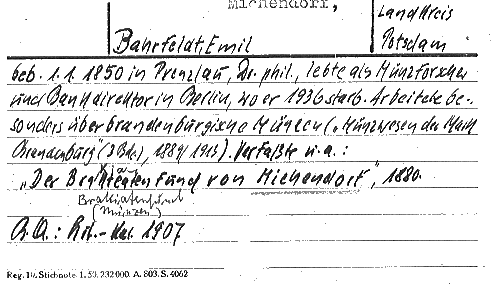 Michendorf,
Landkreis
Potsdam
Bahrfeldt, Emil
geb. 1.1.1850 in Prenzlau, Dr. phil., lebte als Münzforscher
und Bankdirektor in Berlin, wo er 1936 starb. Arbeitete be-
sonders über brandenburgische Münzen („Münzwesen der Mark
Brandenburg" (3 Bde), 1889/1913). Verfaßte u.a.:
„Der Brakteatenfund von Michendorf", 1880.
Brakteatenfund
(Münzen)
A.A.: 1907
Reg. 10. Stichnote. 1. 50. 232000. A. 803. S. 4062